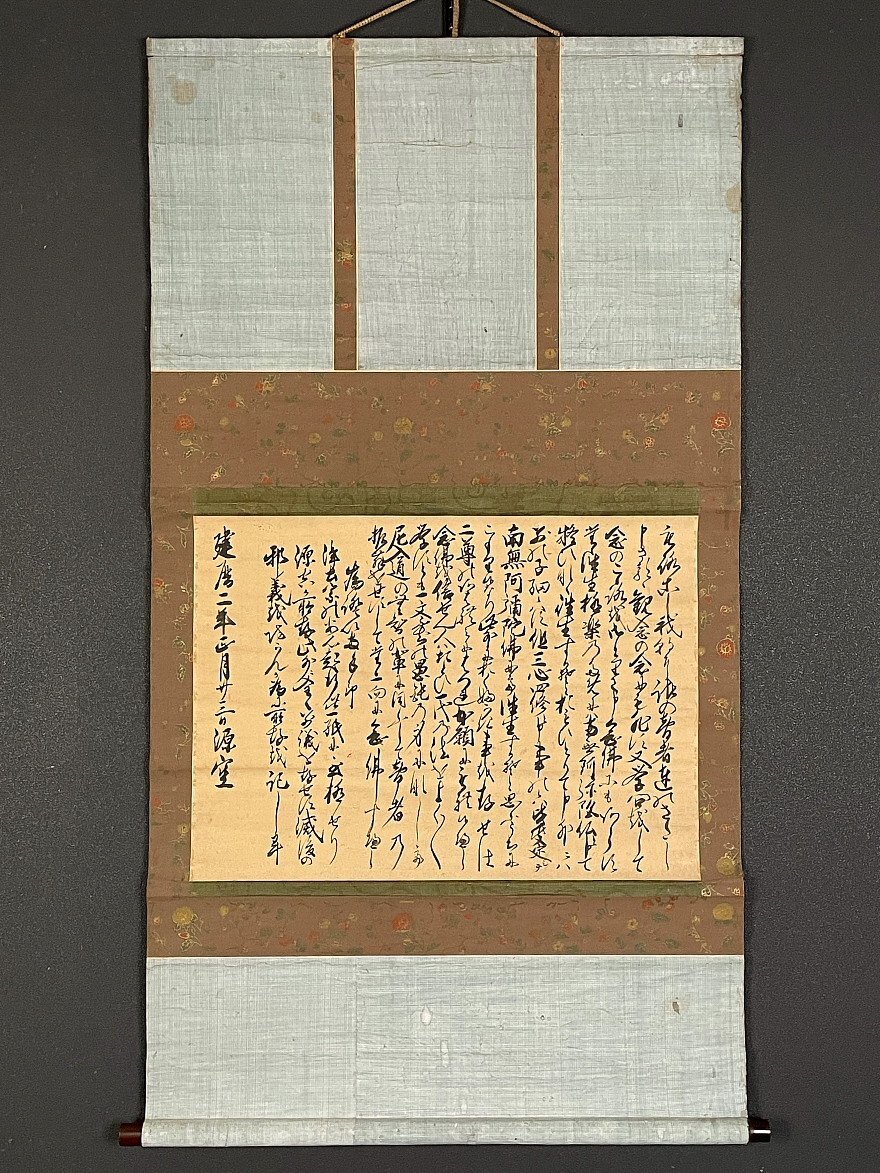 もろこし我朝にもろもろの智者達のさたし
申さるる観念の念にも非ず又学問をして
念の心を悟りて申念佛にもあらず
只往生極楽の為には南無阿弥陀佛と申て
疑ひなく往生するぞと思ひとりて申外には
子細候はず但三心四修と申事の候は皆決定
南無阿弥陀佛にて往生するぞと思ふ内に
こもり候なり此外に奥ふかき事を存せは
二尊のあはれみにはづれ本願にもれ候べし
念佛を信ぜん人はたとひ一代の法をよくよく
学すとも一文不知の愚鈍の身になして
尼入道の無智の輩に同じうして智者の
振舞をせずして只一向に念佛すべし
為證以両手印
浄土宗の安心起行此一紙に至極せり
源空が所存此外に全く別儀を存せず滅後の
邪義を防がんが為に所存を記し畢
建暦二年正月廿三日源空